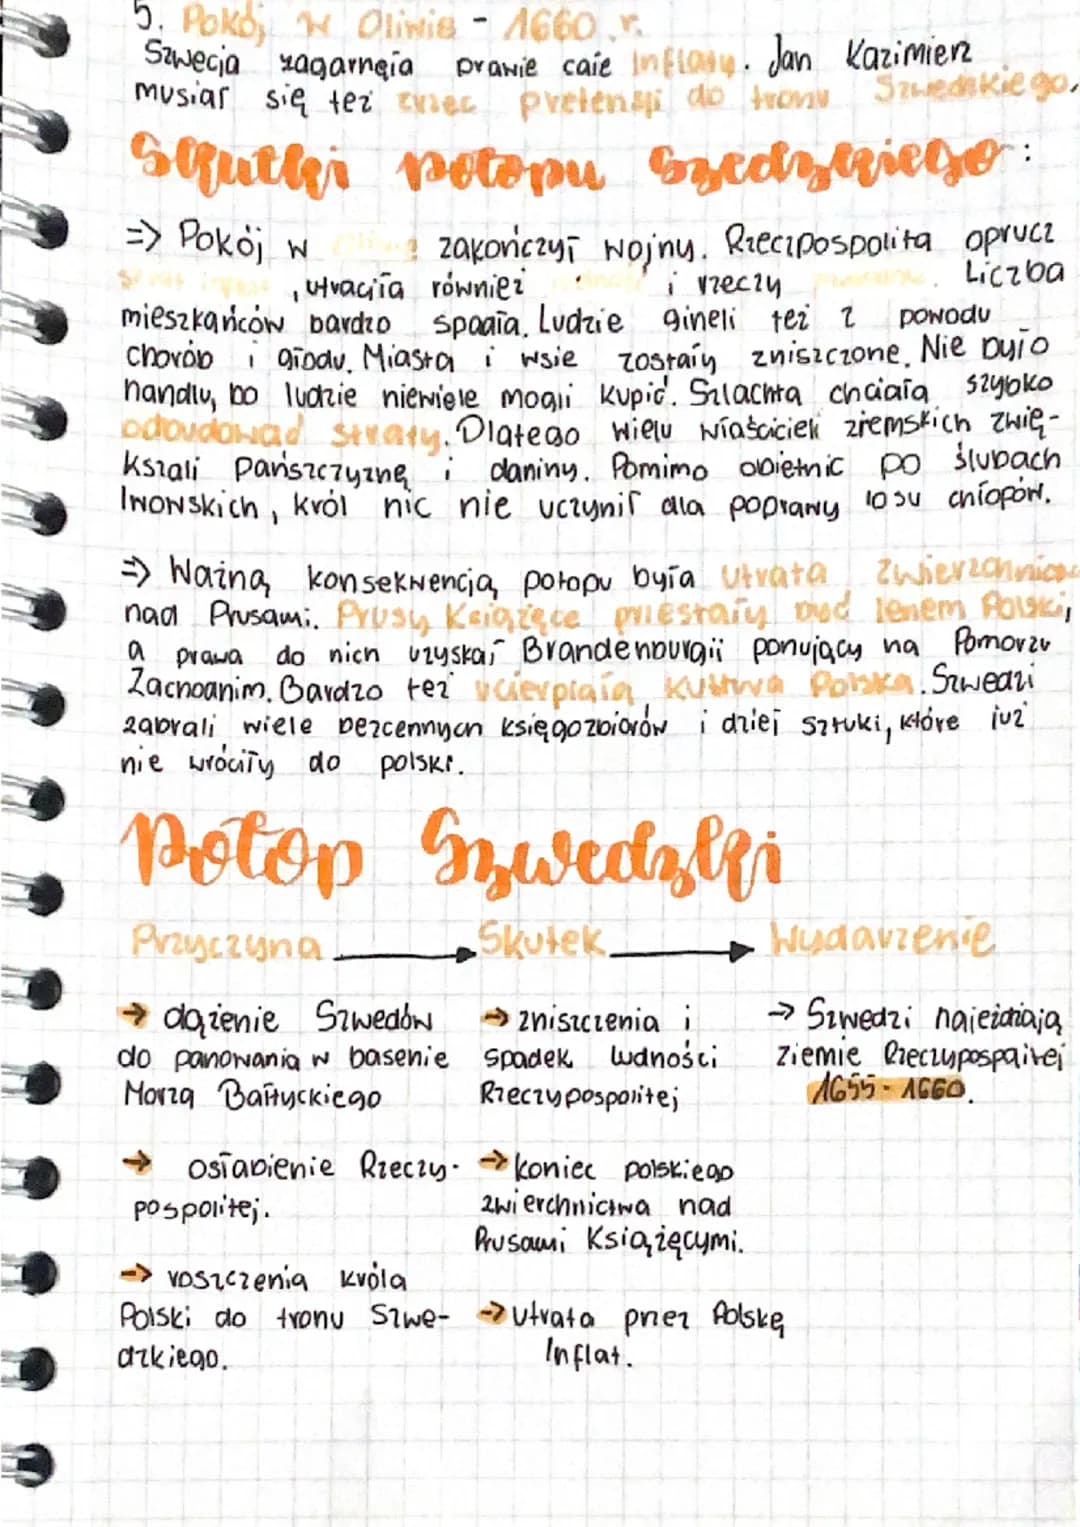 5. Pokój w Oliwie - 1660 r.
Szwecja zagarnęła prawie całe Inflaty. Jan Kazimierz
musiał się też zrzec pretensji do tronu Szwedzkiego.
Skutki potopu Szwedzkiego:
=> Pokój w zakończył wojny. Rzeczpospolita oprucz
, utraciła również i rzeczy Liczba
mieszkańców bardzo spadła. Ludzie gineli też z powodu
chorób i głodu. Miasta i wsie zostały zniszczone. Nie było
handlu, bo ludzie niewiele mogli kupić. Szlachta chciała szybko
odbudować straty. Dlatego wielu właścicieli ziemskich zwię-
kszali pańszczyznę i daniny. Pomimo obietnic po ślubach
lwowskich, król nic nie uczynił dla poprawy losu chłopów.
=> Ważną konsekwencją potopu była utrata
nad Prusami. Prusy Książęce przestały być lenem Polski,
a prawa do nich uzyskał Brandenburgii panujący na Pomorzu
Zachodnim. Bardzo też ucierpiała kultura Polska. Szwedzi
zabrali wiele bezcennych księgozbiorów i dzieł sztuki, które już
nie wróciły do polski.
Potop Szwedzki
Przyczyna → Skutek → Wydarzenie
→ dążenie Szwedów
do panowania w basenie
Morza Bałtyckiego
→ osłabienie Rzeczy-
pospolitej.
→ roszczenia króla
Polski do tronu Szwe-
dzkiego.
→ zniszczenia i
spadek ludności
Rzeczypospolitej
→ koniec polskiego
zwierchnictwa nad
Prusami Książęcymi.
→ utrata przez Polskę
Inflat.
→ Szwedzi najeżdżają
ziemie Rzeczypospolitej
1655 - 1660.